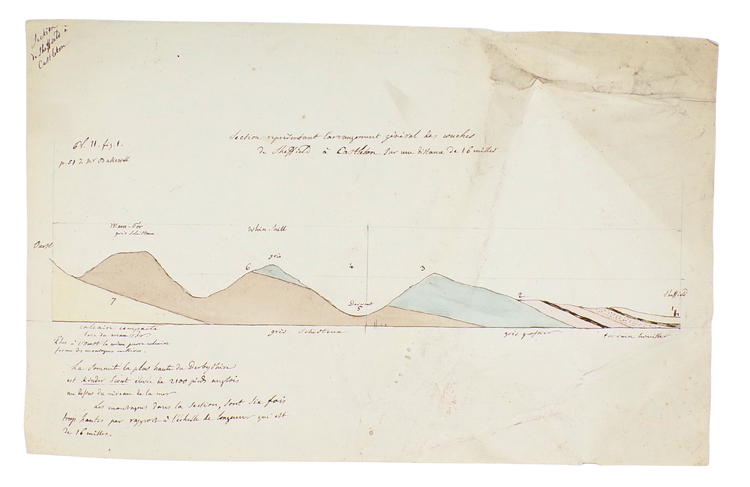 Section
de Sheffield à
Castleton
Section représentant l'arrangement général des couches
de Sheffield à Castleton sur une distance de 16 milles
Pl. II. fig. 1.
p. 51 de Mr Bakewell
Mam-Tor
grès schisteux
Whin-hill
grès
Ouest
6
4
3
Derwent
5
2
Sheffield
1
7
calcaire compacte
grès schisteux
grès grossier
terrain houiller
La sommit la plus haute du Derbyshire
est Kinder Scout élevé de 2100 pieds anglois
au dessus du niveau de la mer
Les montagnes dans la section, sont six fois
trop hautes par rapport à l'échelle de longueur qui est
de 16 milles.